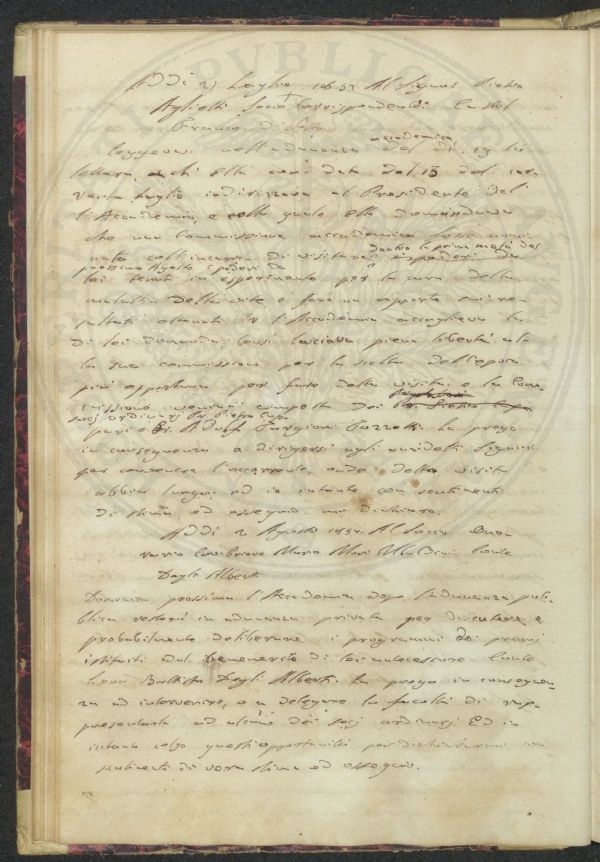 Addi 21 Luglio 1857 Al Signor Pietro
Aglietti Socio Corrispondente Castel
Franco di Sotto
Leggevasi nell'adunanza accademica del dì 19 la
lettera, che Ella con data del 13 del cor-
rente luglio indirizzava al Presidente del
l'Accademia, e colla quale Ella domandava
che una Commissione accademica fosse nomi-
nata coll'incarico di visitare dentro la prima metà del
prossimo Agosto i poderi da
lei tenuti in esperimento per la cura della
malattia della vite e fare un rapporto sui re-
sultati ottenuti. L'Accademia accoglieva la
di lei domanda, lasciava piena libertà al
la sua commissione per la scelta dell'epoca
più opportuna per fare detta visita, e la Com-
missione veniva composta dei
Socj ordinarj Pietro Cup-
pari e Adolfo Targioni Tozzetti. La prego
in conseguenza a dirigersi agli Signori
per convenire l'occorrente, onde detta visita
abbia luogo, ed io intanto con sentimenti
di stima ed ossequio mi dichiaro.
Addi 2 Agosto 1857. Al Socio Ono-
rario Mario Mori Ubaldini Conte
Degli Alberti
Domenica prossima l'Accademia dopo l'adunanza pub-
blica resterà in adunanza privata per discutere e
probabilmente deliberare i programmi dei premj
istituiti dal benemerito di lei antecessore Conte
Leon Battista Degli Alberti. La prego in conseguen-
za ad intervenire, o a delegare la facoltà di rap-
presentarla ad alcuno dei socj ordinarj. Ed in
intanto colgo quest'opportunità per dichiararmi con
sentimenti di vera stima ed ossequio.